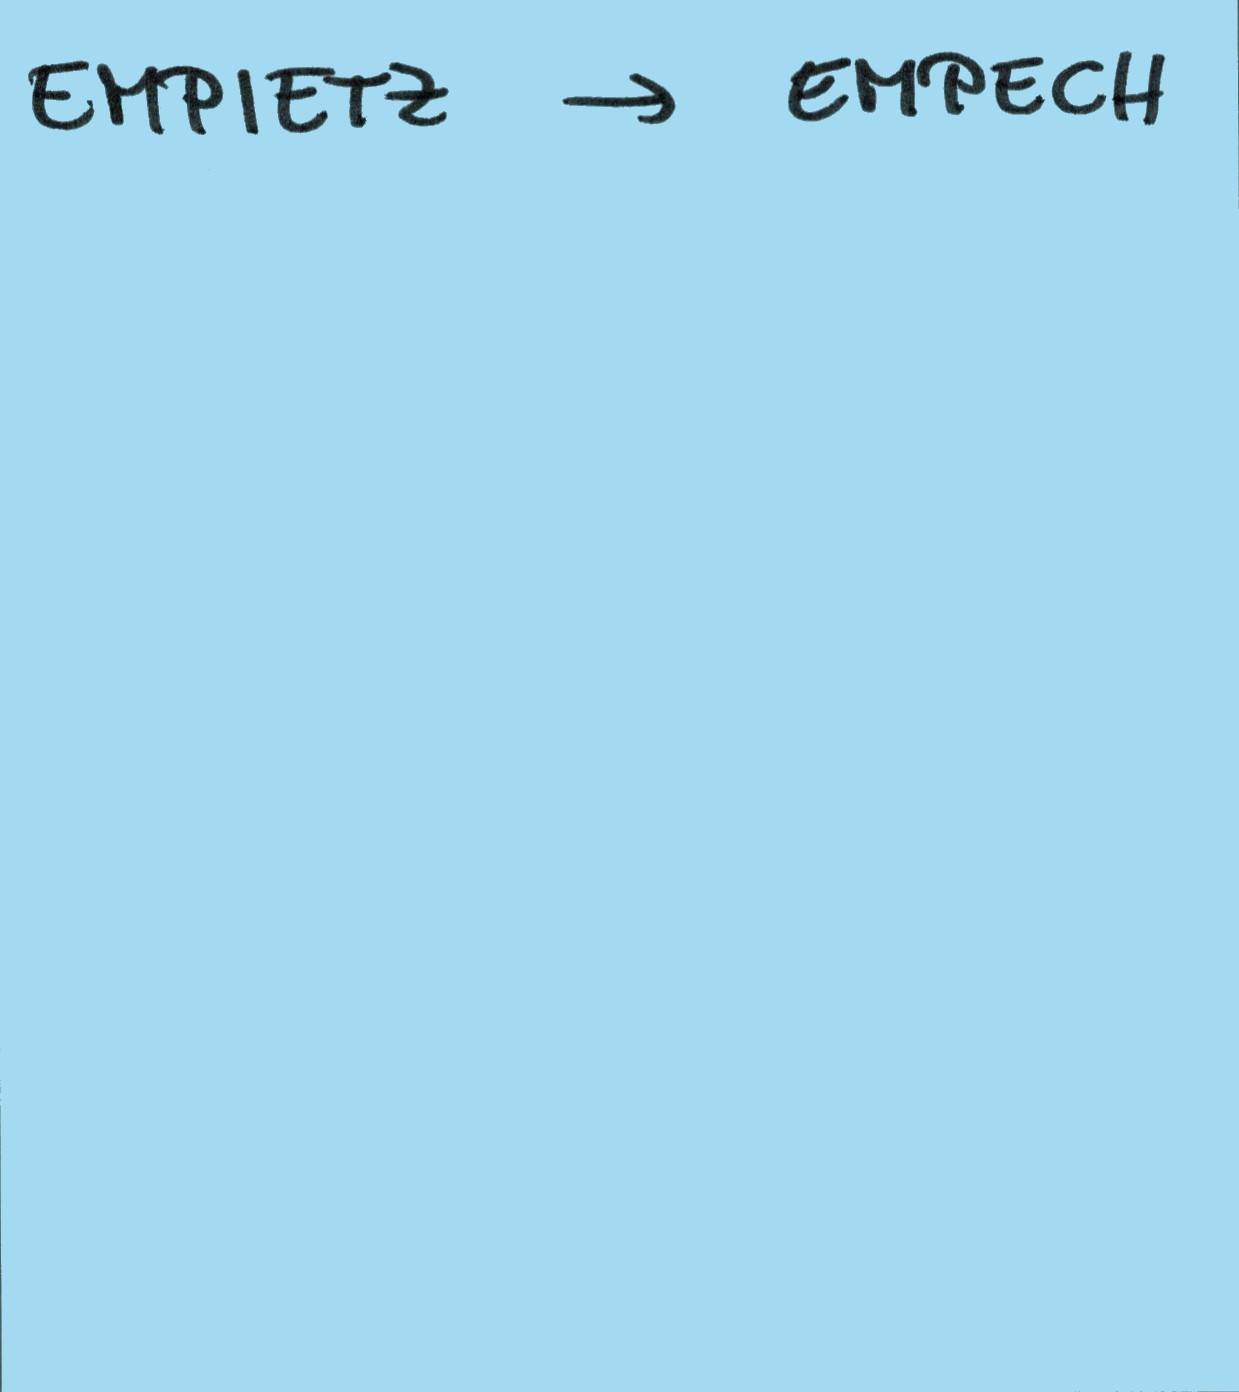 EMPIETZ → EMPECH